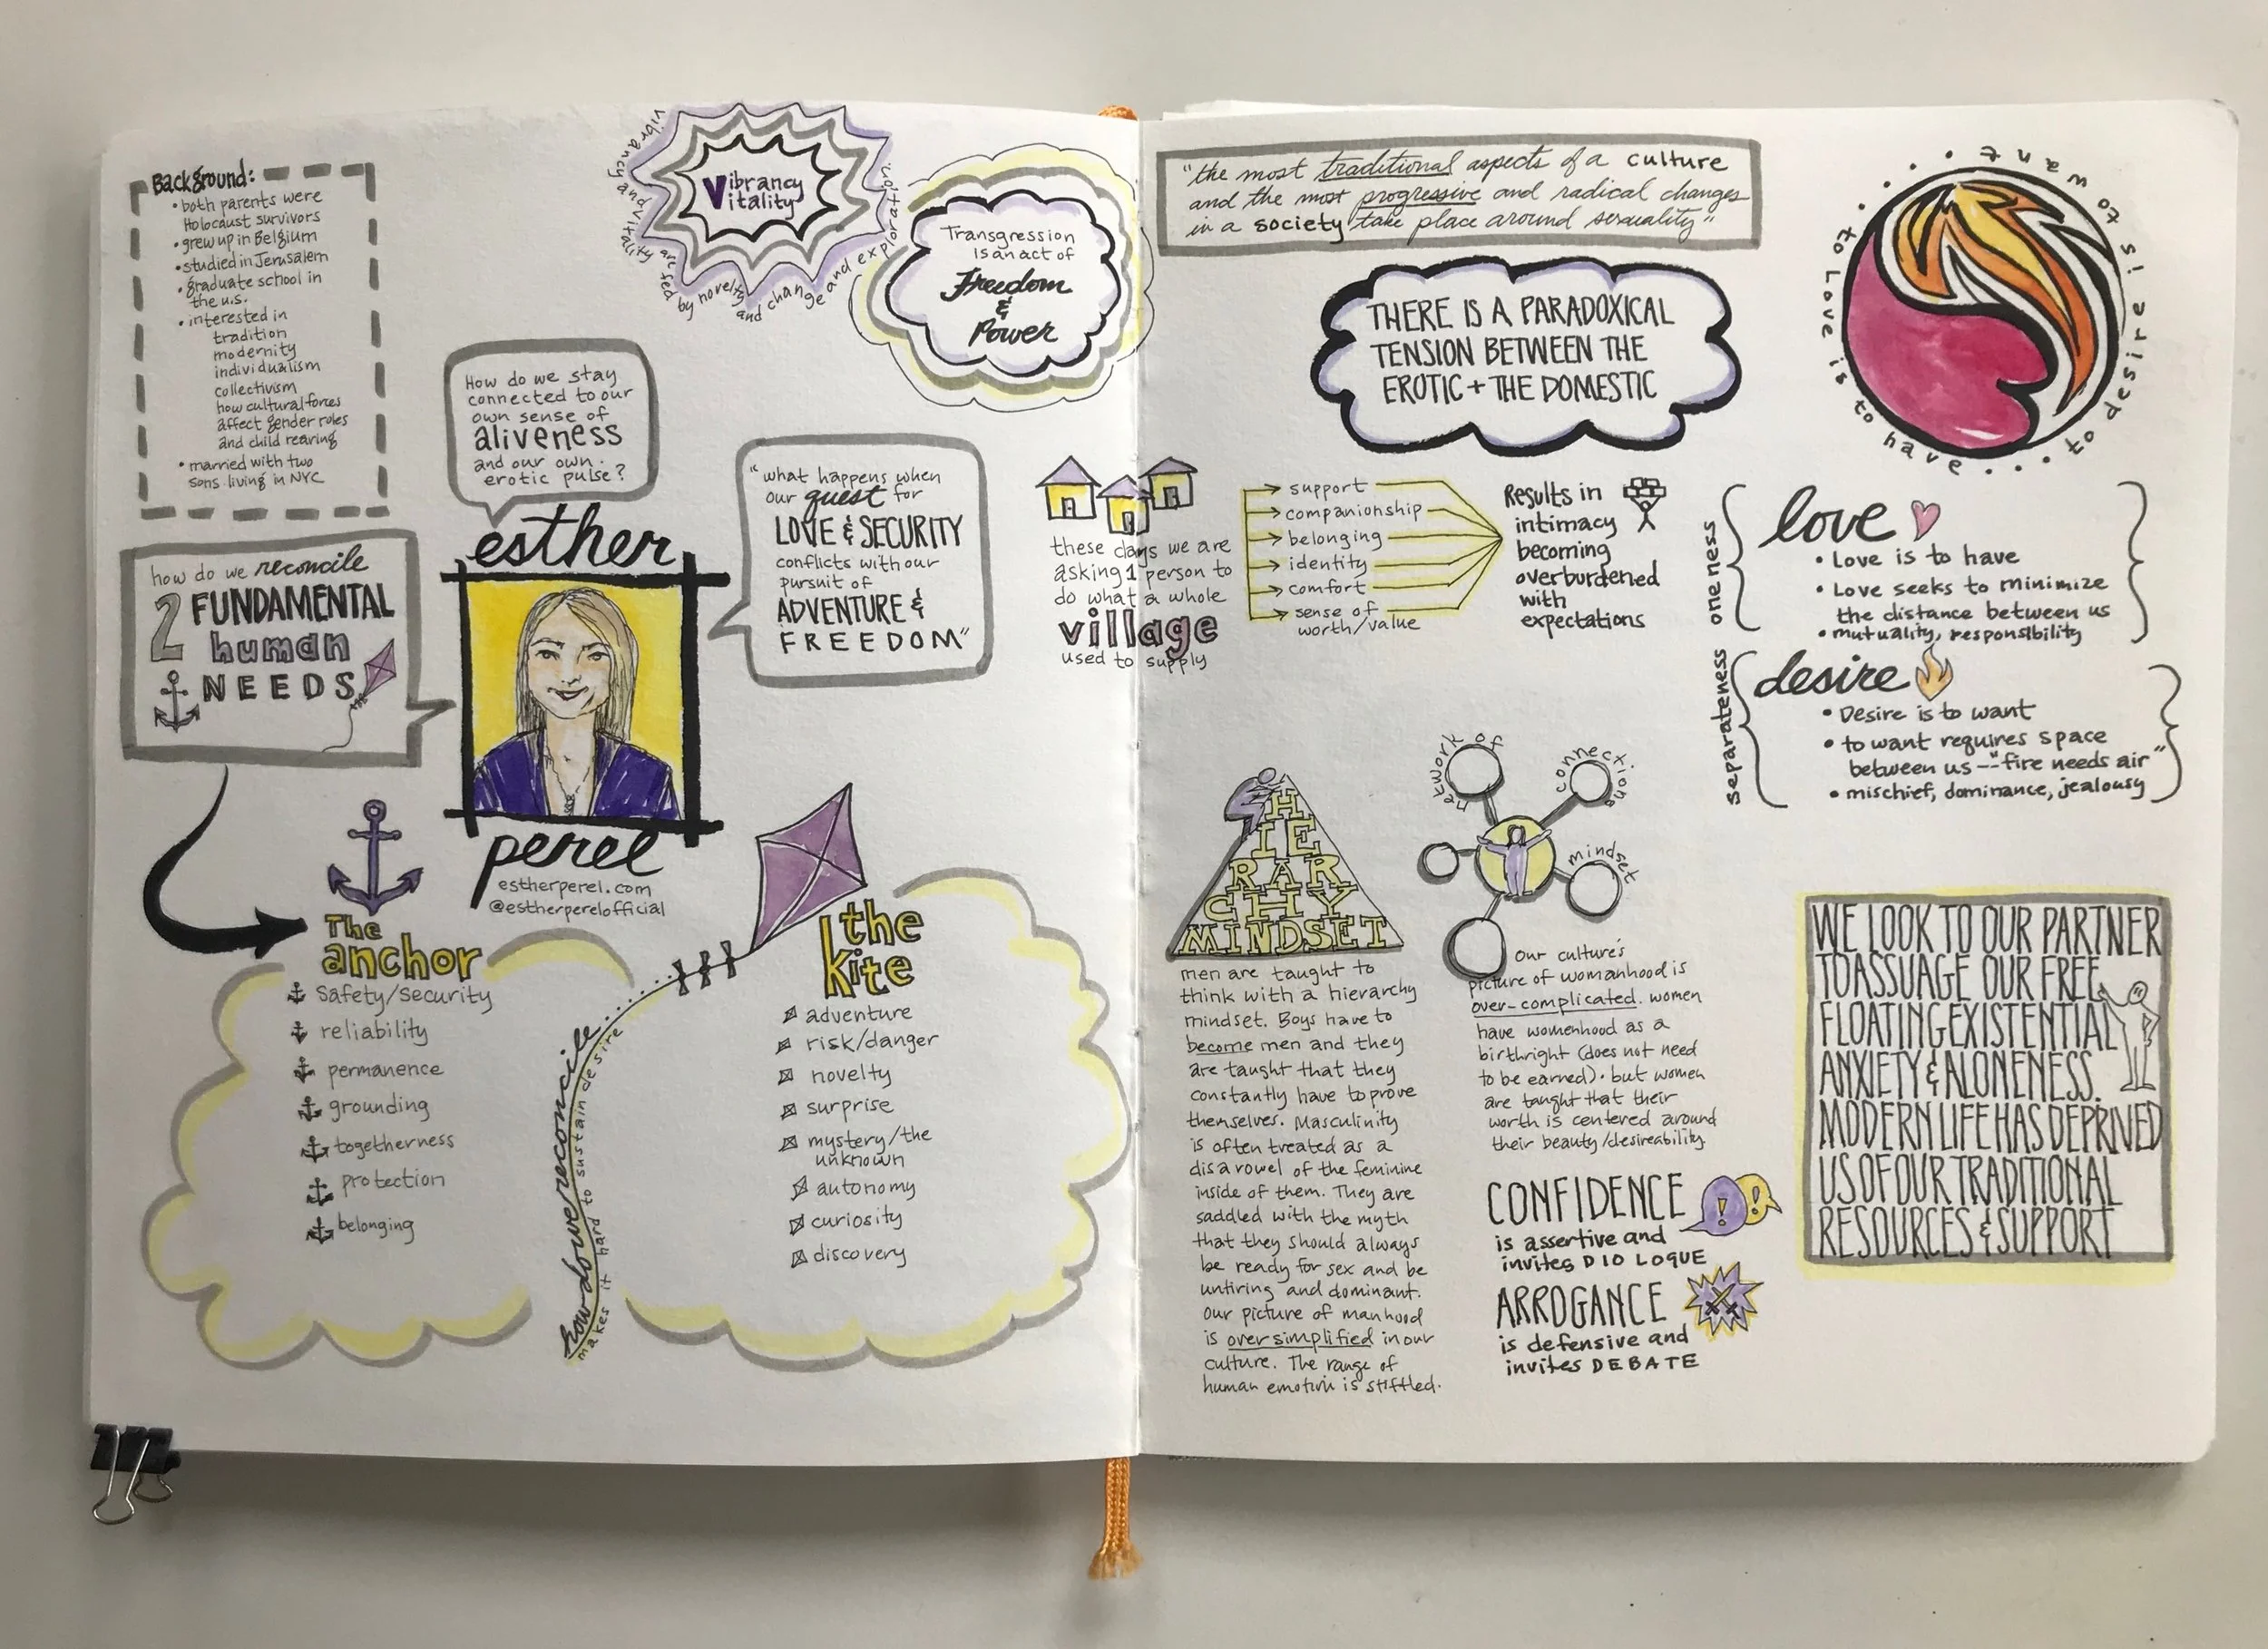 Background:
• both parents were
Holocaust survivors
• grew up in Belgium
• studied in Jerusalem
• graduate school in
the u.s.
• interested in
tradition
modernity
individualism
collectivism
how cultural forces
affect gender roles
and child rearing
• married with two
sons living in NYC
Vibrancy
Vitality
vibrancy and vitality are fed by novelty and change and exploration
Transgression
is an act of
Freedom
&
Power
How do we stay
connected to our
own sense of
aliveness
and our own
erotic pulse?
"what happens when
our quest for
LOVE & SECURITY
conflicts with our
pursuit of
ADVENTURE &
FREEDOM"
how do we reconcile
2 FUNDAMENTAL
human
NEEDS
esther
perel
estherperel.com
@estherperelofficial
The
anchor
Safety/security
reliability
permanence
grounding
togetherness
protection
belonging
how do we reconcile...
makes it hard to sustain desire
the
kite
adventure
risk/danger
novelty
surprise
mystery/the
unknown
autonomy
curiosity
discovery
"the most traditional aspects of a culture
and the most progressive and radical changes
in a society take place around sexuality"
THERE IS A PARADOXICAL
TENSION BETWEEN THE
EROTIC + THE DOMESTIC
to love is to have.... to desire is to want....
these days we are
asking 1 person to
do what a whole
village
used to supply
support
companionship
belonging
identity
comfort
sense of
worth/value
Results in
intimacy
becoming
overburdened
with
expectations
oneness
love
• Love is to have
• Love seeks to minimize
the distance between us
• mutuality, responsibility
separateness
desire
• Desire is to want
• to want requires space
between us -- "fire needs air"
• mischief, dominance, jealousy
HIERARCHY
MINDSET
men are taught to
think with a hierarchy
mindset. Boys have to
become men and they
are taught that they
constantly have to prove
themselves. Masculinity
is often treated as a
disavowel of the feminine
inside of them. They are
saddled with the myth
that they should always
be ready for sex and be
untiring and dominant.
Our picture of manhood
is oversimplified in our
culture. The range of
human emotion is stiffled.
network of
connections
mindset
Our culture's
picture of womanhood is
over-complicated. women
have womenhood as a
birthright (does not need
to be earned). but women
are taught that their
worth is centered around
their beauty/desireability.
CONFIDENCE
is assertive and
invites DIOLOGUE
ARROGANCE
is defensive and
invites DEBATE
WE LOOK TO OUR PARTNER
TO ASSUAGE OUR FREE
FLOATING EXISTENTIAL
ANXIETY & ALONENESS.
MODERN LIFE HAS DEPRIVED
US OF OUR TRADITIONAL
RESOURCES & SUPPORT